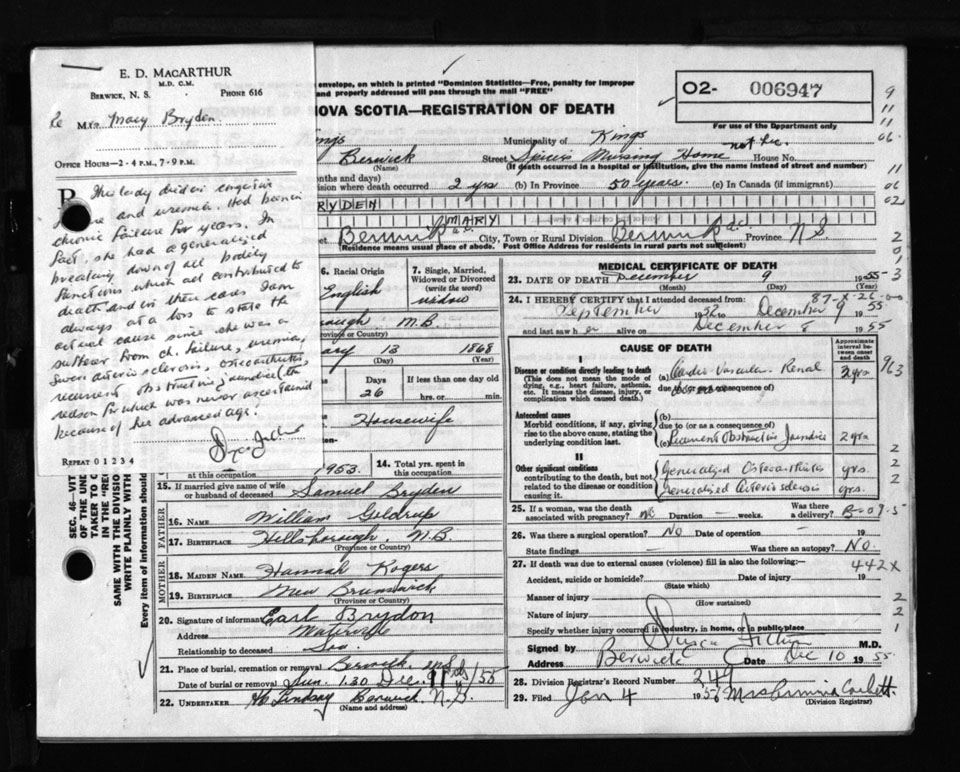 E. D. MacARTHUR
M.D. C.M.
BERWICK, N. S.
PHONE 616
Re
Mrs Mary Bryden.
OFFICE HOURS—2 - 4 P.M., 7 - 9 P.M.
R This lady died in congestive
failure and uremia. Had been in
chronic failure for years. In
fact, she had a generalized
breaking down of all bodily
functions which all contributed to
death and in these cases I am
always at a loss to state the
actual cause since she was a
sufferer from ch. failure, uremia,
severe arteriosclerosis, osteoarthritis,
recurrent obstructing jaundice (the
reason for which was never ascertained
because of her advanced age.
REPEAT 0 1 2 3 4
envelope, on which is printed "Dominion Statistics—Free, penalty for improper
and properly addressed will pass through the mail "FREE"
NOVA SCOTIA—REGISTRATION OF DEATH
O2- 006947
For use of the Department only
Kings
Municipality of Kings
not hr.
Berwick
(Name)
Street Spicer's Nursing Home House No.
(If death occurred in a hospital or institution, give the name instead of street and number)
onths and days)
ivision where death occurred 2 yrs (b) In Province 50 years. (c) In Canada (if immigrant)
RYDEN
MARY
et Berwick City, Town or Rural Division Berwick Province N S
Residence means usual place of abode. Post Office Address for residents in rural parts not sufficient)
6. Racial Origin
English
7. Single, Married, Widowed or Divorced
(write the word)
widow
orough, N.B.
Province or Country)
ary 13 1868
(Day) (Year)
Days
26
If less than one day old
hrs. or min.
Housewife
at this occupation 1953.
14. Total yrs. spent in this occupation
15. If married give name of wife or husband of deceased Samuel Bryden
FATHER
16. NAME William Geldrup
17. BIRTHPLACE Hillsborough, N.B.
(Province or Country)
MOTHER
18. MAIDEN NAME Hannah Rogers
19. BIRTHPLACE New Brunswick
(Province or Country)
20. Signature of informant Earl Brydon
Address Waterville
Relationship to deceased Son
21. Place of burial, cremation or removal Berwick, N.S.
Date of burial or removal Sun. 1.30 Dec. 11 /55
22. UNDERTAKER Lindsay Berwick N.S.
(Name and address)
SEC. 46—VIT
OF THE UNE
TAKER TO C
IN THE "REG
SAME WITH THE DIVISIO
WRITE PLAINLY WITH
Every item of information should
MEDICAL CERTIFICATE OF DEATH
23. DATE OF DEATH December 9 1955
(Month) (Day) (Year)
87-X-26-00
24. I HEREBY CERTIFY that I attended deceased from
September 1952 to December 9 1955
and last saw her alive on December 8 1955
CAUSE OF DEATH
Approximate interval between onset and death
I
Disease or condition directly leading to death
(This does not mean the mode of dying, e.g., heart failure, asthenia, etc. It means the disease, injury, or complication which caused death.)
(a) Cardio Vascular Renal 2 yrs
due to (or as a consequence of)
Antecedent causes
Morbid conditions, if any, giving rise to the above cause, stating the underlying condition last.
(b)
due to (or as a consequence of)
(c) Recurrent Obstructive Jaundice 2 yrs
II
Other significant conditions
contributing to the death, but not related to the disease or condition causing it.
Generalized Osteoarthritis yrs.
Generalized Arteriosclerosis yrs.
25. If a woman, was the death associated with pregnancy? no Duration — weeks. Was there a delivery?
26. Was there a surgical operation? No Date of operation — 19
State findings — Was there an autopsy? No.
27. If death was due to external causes (violence) fill in also the following:—
442X
Accident, suicide or homicide? Date of injury 19
(State which)
Manner of injury
(How sustained)
Nature of injury
Specify whether injury occurred in industry, in home, or in public place
Signed by M.D.
Address Berwick Date Dec 10 1955
28. Division Registrar's Record Number 244
29. Filed Jan 4 1956 Mrs Corbett.
(Division Registrar)
9
11
06
11
06
02
2
0
1
3
963
2
2
2
2
2
1